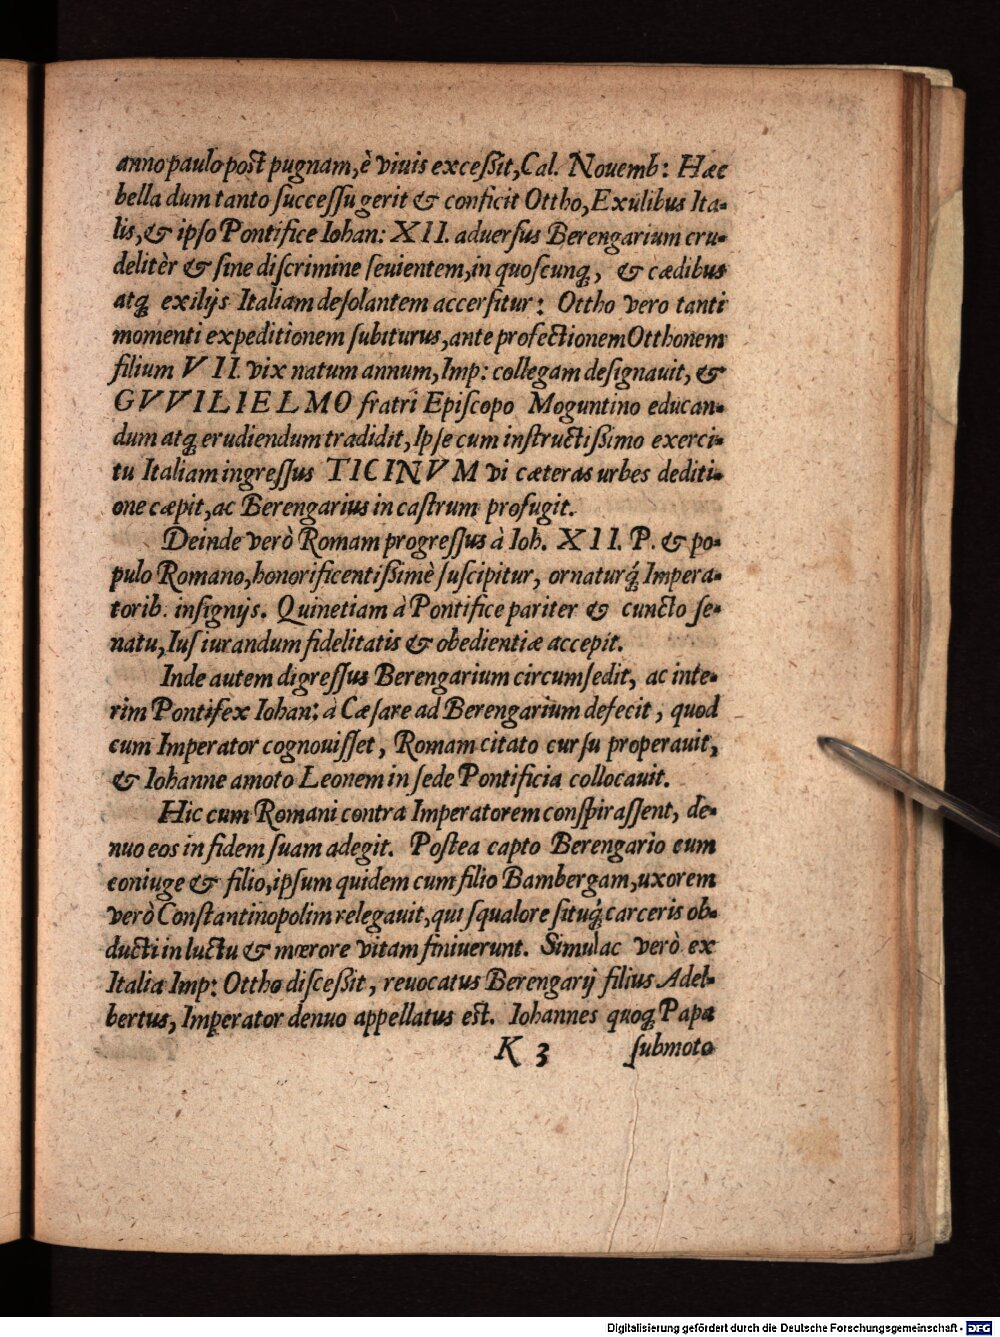 anno paulo post pugnam, è viuis excessit, Cal. Novemb: Hæc
bella dum tanto successu gerit & conficit Ottho, Exulibus Ita-
lis, & ipso Pontifice Iohan: XII. aduersus Berengarium cru-
delitèr & sine discrimine seuientem, in quoscunq́, & cædibus
atq́ exilijs Italiam desolantem accersitur: Ottho vero tanti
momenti expeditionem subiturus, ante profectionem Otthonem
filium VII. vix natum annum, Imp: collegam designauit, &
GVVILIELMO fratri Episcopo Moguntino educan-
dum atq́ erudiendum tradidit, Ipse cum instructissimo exerci-
tu Italiam ingressus TICINVM vi cæteras urbes dediti-
one cæpit, ac Berengarius in castrum profugit.
Deinde verò Romam progressus à Ioh. XII. P. & po-
pulo Romano, honorificentissimè suscipitur, ornaturq́ Impera-
torib. insignijs. Quinetiam à Pontifice pariter & cuncto se-
natu, Ius iurandum fidelitatis & obedientiæ accepit.
Inde autem digressus Berengarium circumsedit, ac inte-
rim Pontifex Iohan: à Cæsare ad Berengarium defecit, quod
cum Imperator cognouisset, Romam citato cursu properauit,
& Iohanne amoto Leonem in sede Pontificia collocauit.
Hic cum Romani contra Imperatorem conspirassent, de-
nuo eos in fidem suam adegit. Postea capto Berengario cum
coniuge & filio, ipsum quidem cum filio Bambergam, uxorem
verò Constantinopolim relegauit, qui squalore situq́ carceris ob-
ducti in luctu & mœrore vitam finiuerunt. Simulac verò ex
Italia Imp: Ottho discessit, reuocatus Berengarij filius Adel-
bertus, Imperator denuo appellatus est. Iohannes quoq́ Papa
K 3 submoto
Digitalisierung gefördert durch die Deutsche Forschungsgemeinschaft - DFG